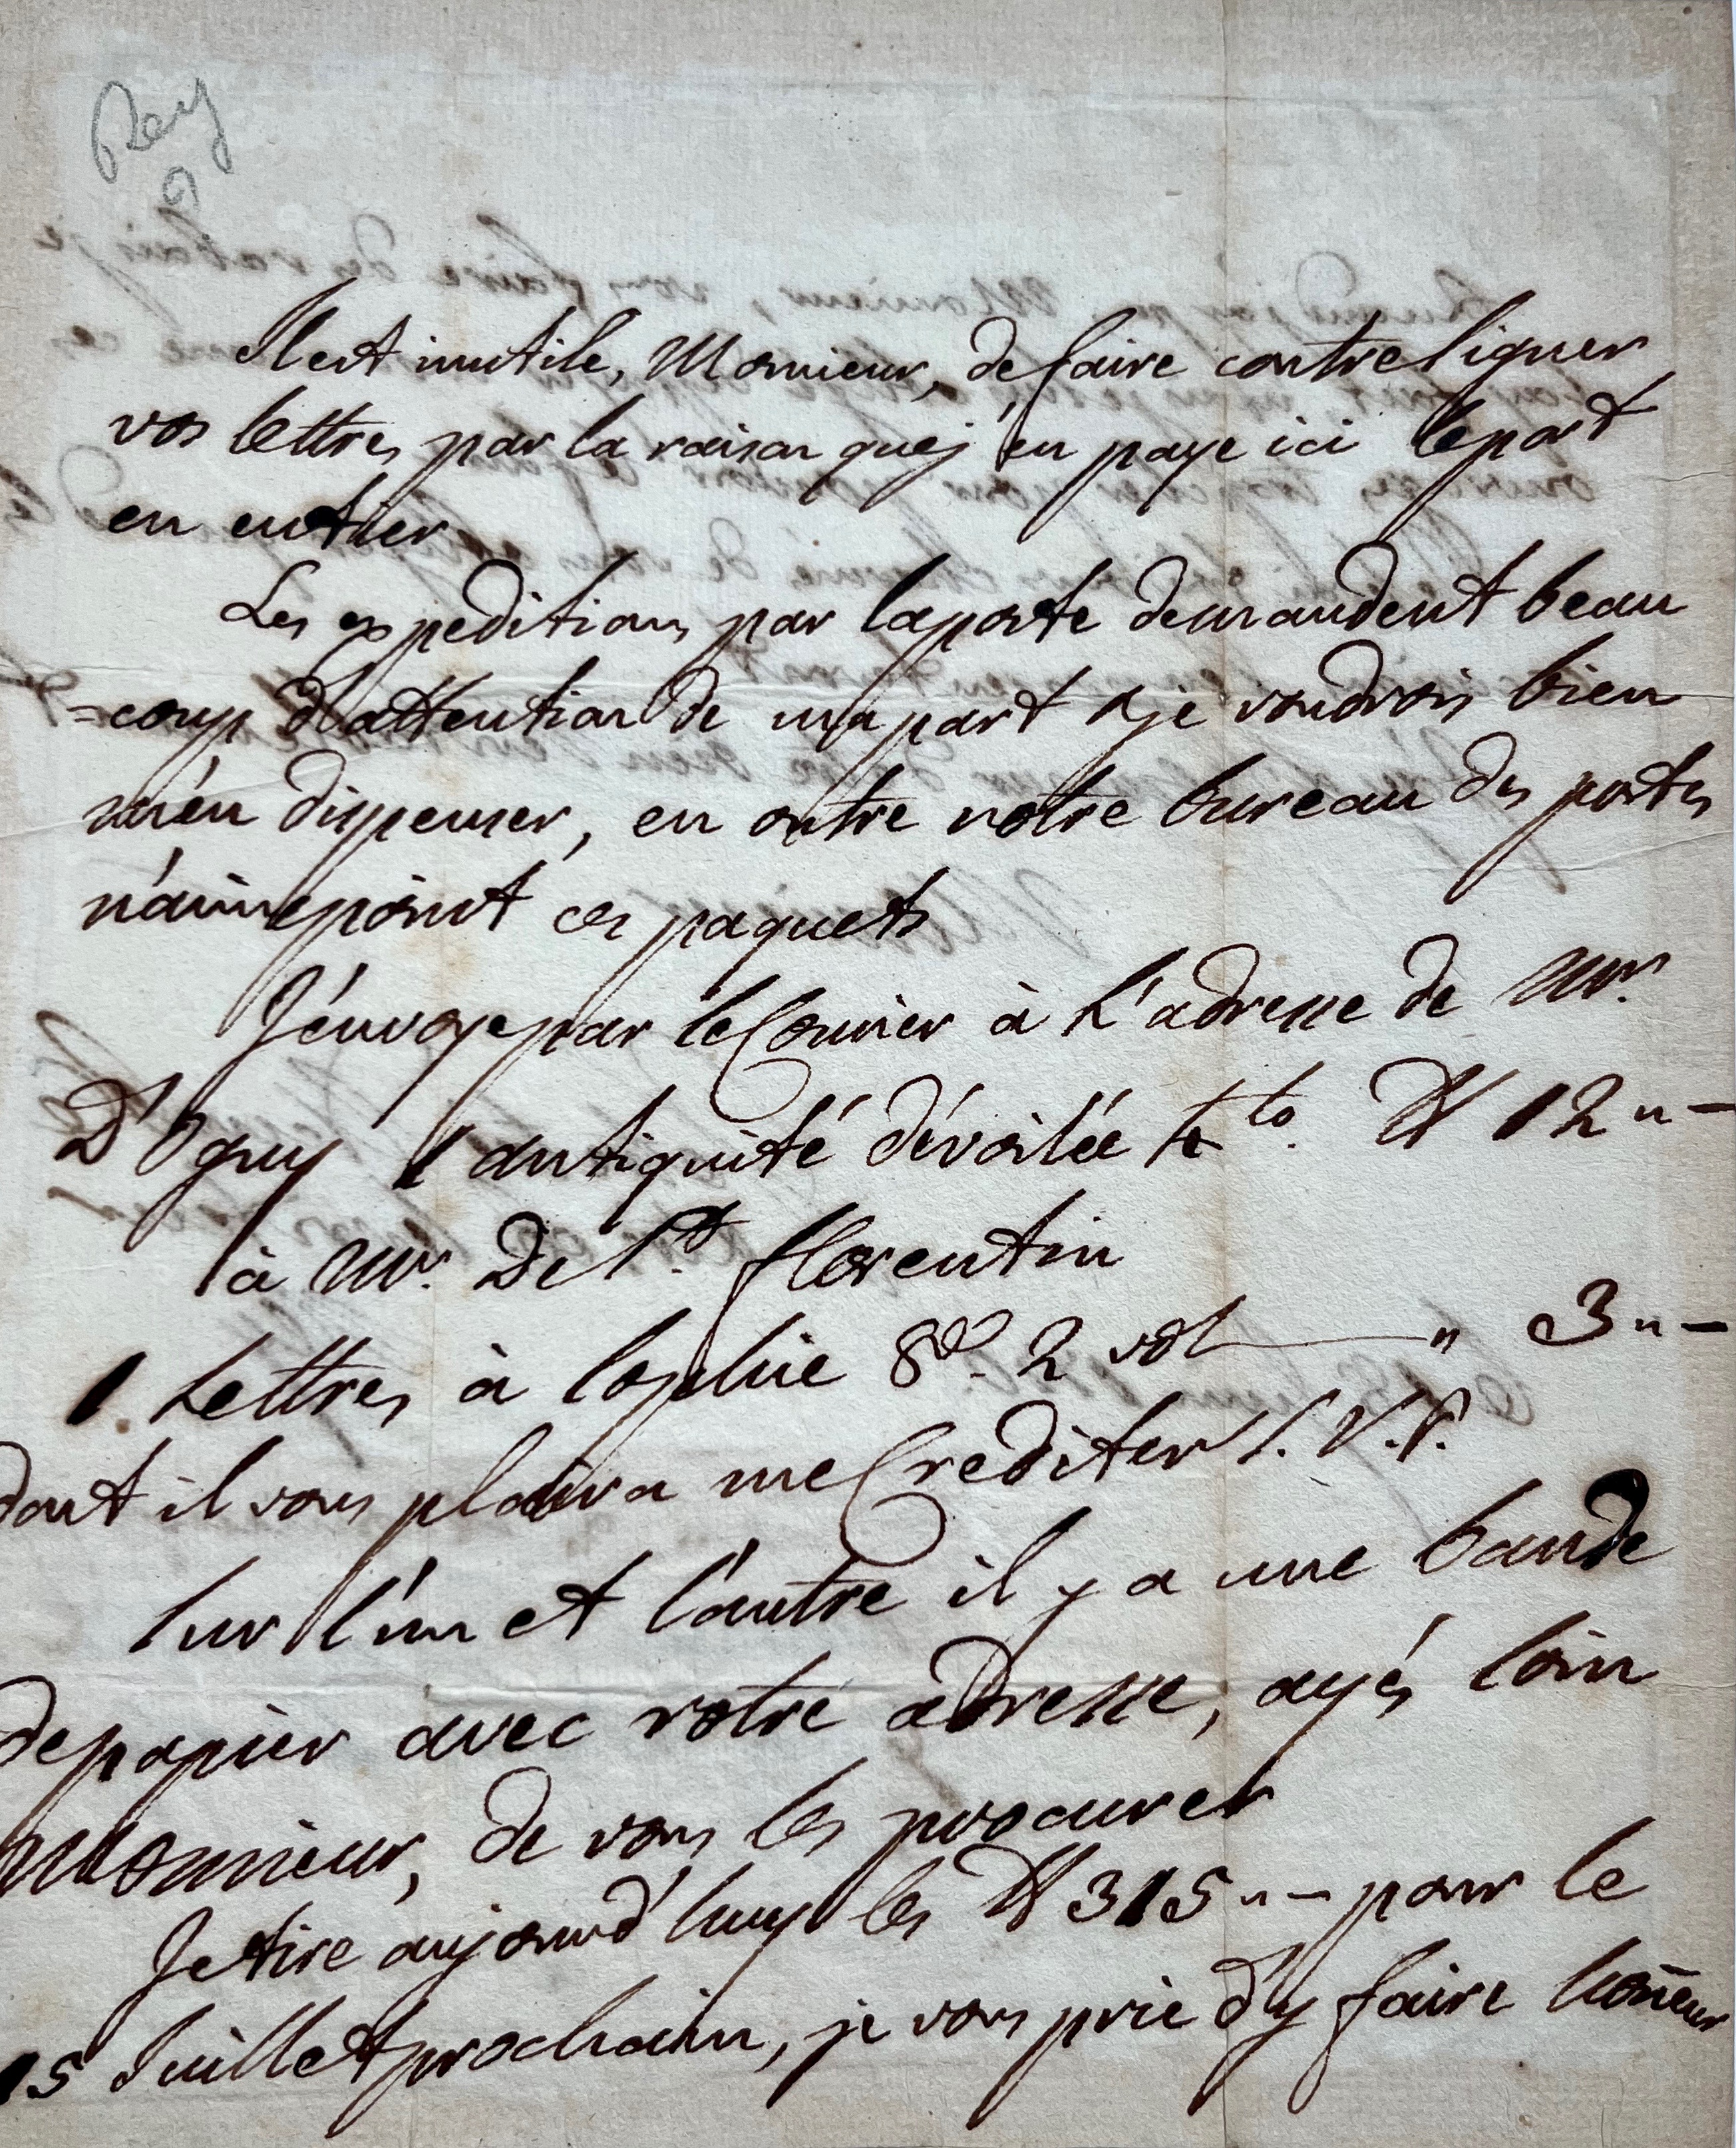 Rey
9
Il est inutile, Monsieur, de faire contresigner
vos lettres par la raison que j'en paye ici le port
en entier
Les expeditions par la poste demandent beau
=coup d'attention de ma part & je voudrois bien
m'en dispenser, en outre notre bureau des postes
n'aime point ces paquets
J'envoye par le Courier à L'adresse de Mr.
D'Ogny 1 antiquité dévoilée 4to. 12 " -
à Mr. De St. florentin
1 Lettres à Sophie 8o. 2 vol " 3 " -
dont il vous plaira me Crediter S. V. P.
Sur l'un et l'autre il y a une bande
de papier avec votre adresse, ayés soin
Monsieur, de vous les procurer
Je tire aujourd'huy les 315 " - pour le
15 Juillet prochain, je vous prie d'y faire honneur